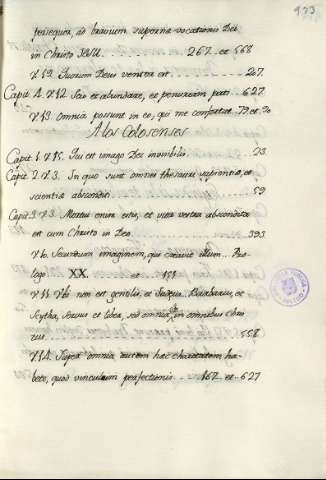 933
persequor, ad bravium supernæ vocationis Dei
in Christo Jesu. 267. et 568
V. 19. Quorum Deus venter est 267
Capit. 4. V. 12. Scio et abundare, et penuriam pati. 627
V. 13. Omnia possum in eo, qui me confortat. 79 et 90
A los Colosenses
Capit. 1. V. 15. Qui est imago Dei invisibilis. 23
Capit. 2. V. 3. In quo sunt omnes thesauri sapientiæ, et
scientiæ absconditi 59
Capit. 3. V. 3. Mortui enim estis, et vita vestra abscondita
est cum Christo in Deo 393
V. 10. Secundum imaginem, qui creavit illum. Pro-
logo XX. et 151
V. 11. Ubi non est gentilis, et Judæus, Barbarus, et
Scytha, servus et liber, sed omnia, et in omnibus Chris-
tus. 558
V. 14. Super omnia autem hæc charitatem ha-
bete, quod vinculum perfectionis. 167. et 627